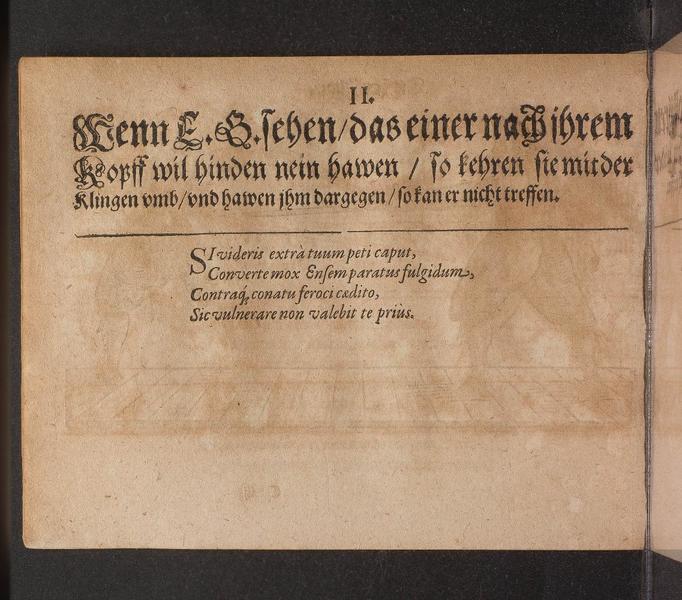 II.
Wenn E. G. sehen/das einer nach jhrem
Kopff wil hinden nein hawen / so kehren sie mit der
Klingen vmb/vnd hawen jhm dargegen/so kan er nicht treffen.
SI videris extrà tuum peti caput,
Converte mox Ensem paratus fulgidum,
Contraq́; conatu feroci cædito,
Sic vulnerare non valebit te priùs.